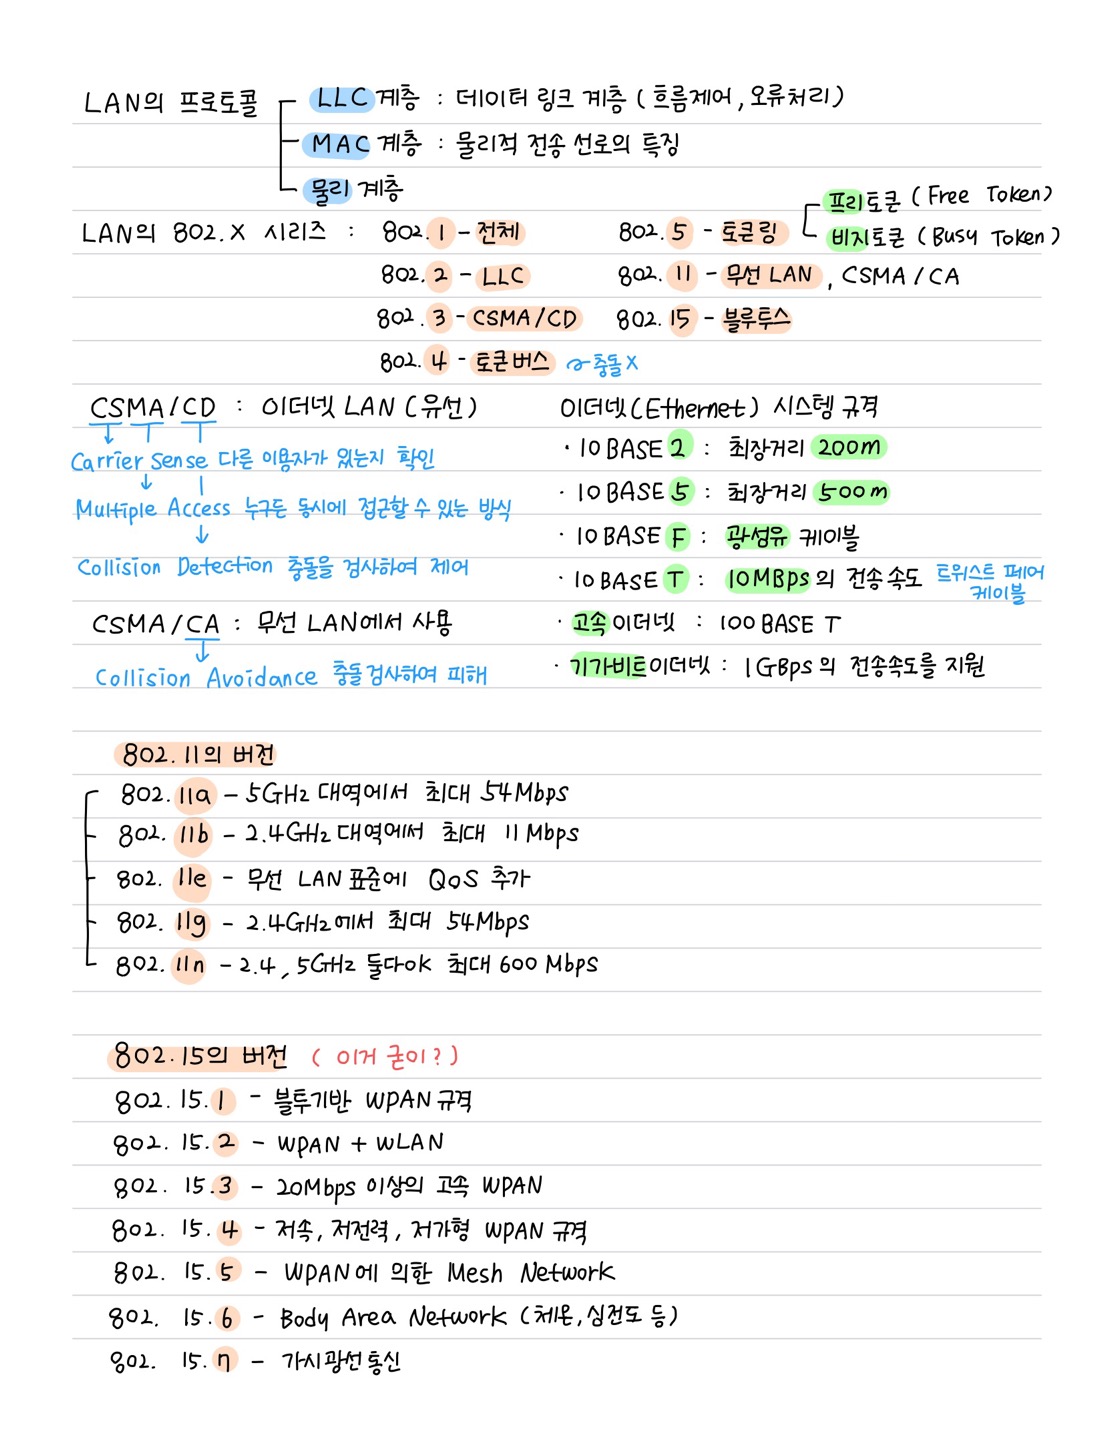 LAN의 프로토콜
LLC 계층 : 데이터 링크 계층 (흐름제어, 오류처리)
MAC 계층 : 물리적 전송 선로의 특징
물리 계층
LAN의 802.X 시리즈 :
802.1 - 전체
802.2 - LLC
802.3 - CSMA/CD
802.4 - 토큰버스 ~충돌X
802.5 - 토큰링
프리토큰 (Free Token)
비지토큰 (Busy Token)
802.11 - 무선 LAN, CSMA/CA
802.15 - 블루투스
CSMA/CD : 이더넷 LAN (유선)
Carrier Sense 다른 이용자가 있는지 확인
Multiple Access 누구든 동시에 접근할 수 있는 방식
Collision Detection 충돌을 검사하여 제어
CSMA/CA : 무선 LAN에서 사용
Collision Avoidance 충돌검사하여 피해
이더넷(Ethernet) 시스템 규격
· 10 BASE 2 : 최장거리 200m
· 10 BASE 5 : 최장거리 500m
· 10 BASE F : 광섬유 케이블
· 10 BASE T : 10MBps의 전송 속도 트위스트 페어 케이블
· 고속이더넷 : 100 BASE T
· 기가비트이더넷 : 1GBps의 전송속도를 지원
802.11의 버전
802.11a - 5GHz 대역에서 최대 54Mbps
802.11b - 2.4GHz 대역에서 최대 11 Mbps
802.11e - 무선 LAN 표준에 QoS 추가
802.11g - 2.4GHz에서 최대 54Mbps
802.11n - 2.4, 5GHz 둘다ok 최대 600 Mbps
802.15의 버전 (이거 굳이?)
802.15.1 - 블투기반 WPAN 규격
802.15.2 - WPAN + WLAN
802.15.3 - 20Mbps 이상의 고속 WPAN
802.15.4 - 저속, 저전력, 저가형 WPAN 규격
802.15.5 - WPAN에 의한 Mesh Network
802.15.6 - Body Area Network (체온, 심전도 등)
802.15.7 - 가시광선통신